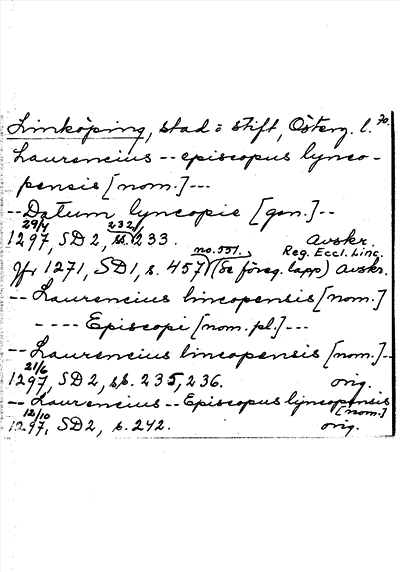 Linköping, stad o stift, Österg. l. 70.
Laurencius -- episcopus lynco-
pensis [nom.] ---
-- Datum lyncopie [gen.] --
29/4 232/
1297, SD 2, ss. 233. Avskr.
no. 551. Reg. Eccl. Linc.
Jfr 1271, SD1, s. 457 (Se föreg. lapp) Avskr.
-- Laurencius lincopensis [nom.]
---- Episcopi [nom. pl.] ---
-- Laurencius lincopensis [nom.] --
21/6
1297, SD 2, ss. 235, 236. orig.
-- Laurencius -- Episcopus lyncopensis
12/10 [nom.]
1297, SD 2, s. 242. orig.